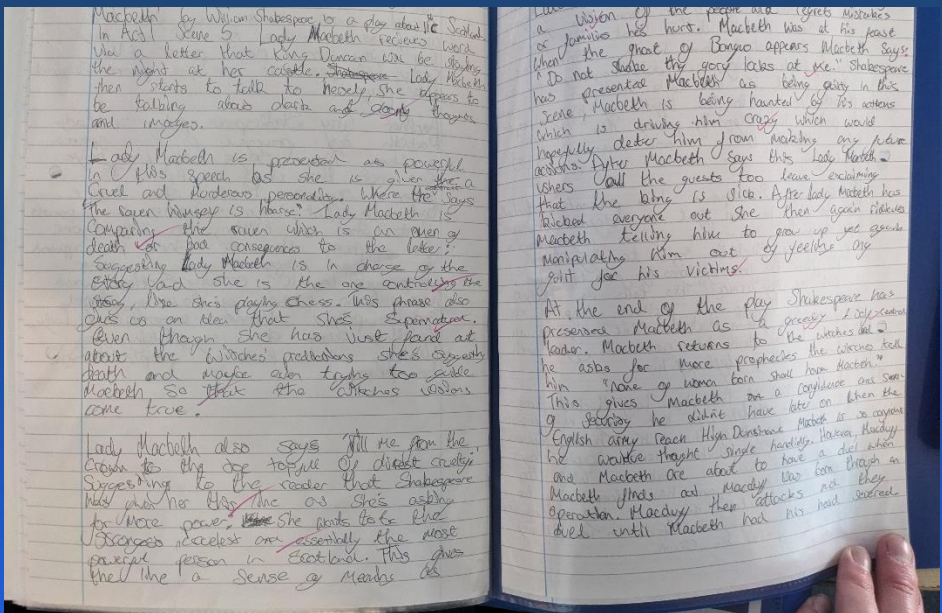 Macbeth by William Shakespeare is a play about the Scotland
In Act 1 Scene 5 Lady Macbeth recieves word
via a letter that King Duncan will be staying
the night at her castle. Shakespeare Lady Macbeth
then starts to talk to herself, she appears to
be talking about dark and thoughts
and images.
Lady Macbeth is presented as powerful
in this speech as she is given a
cruel and murderous personality. Where says
"the raven himself is hoarse." Lady Macbeth is
Comparing the raven which is an omen of
death or bad consequences to the letter.
Suggesting Lady Macbeth is in charge of the
story and she is the one controlling the
like she's playing chess. This phrase also
gives us an idea that she's supernatural.
Even though she has just found out
about the witches' predictions she's suggesting
death and maybe even trying too guide
Macbeth so that the witches visions
come true.
Lady Macbeth also says "fill me from the
Crown to the toe topfull of direst cruelty."
Suggesting to the reader that Shakespeare
has given her this line as she's asking
for more power. She wants to be the
essentially the most
powerful person in Scotland. This gives
the line a sense of meaning as
a vision of the people and regrets mistakes
or families he's hurt. Macbeth was at his feast
when the ghost of Banquo appears Macbeth says:
"Do not shake thy gory locks at me." Shakespeare
has presented Macbeth as being guilty in this
scene, Macbeth is being haunted by his actions
which is driving him crazy which would
hopefully deter him from making any future
actions. After Macbeth says this Lady
ushers all the guests too leave exclaiming
that the king is sick. After lady Macbeth has
everyone out she then again ridicules
Macbeth telling him to grow up yet again
manipulating him out of feeling any
guilt for his victims.
At the end of the play Shakespeare has
presented Macbeth as a greedy & self-centred
leader. Macbeth returns to the witches
he asks for more prophecies the witches tell
him "none of woman born shall harm Macbeth."
This gives Macbeth a confidence and sense
of security he didn't have late on when the
English army reach High Dunsinane Macbeth is so
he would've thought single handily. However Macduff
and Macbeth are about to have a duel when
Macbeth finds out Macduff was born through an
operation. Macduff then attacks and they
duel until Macbeth had his head severed.